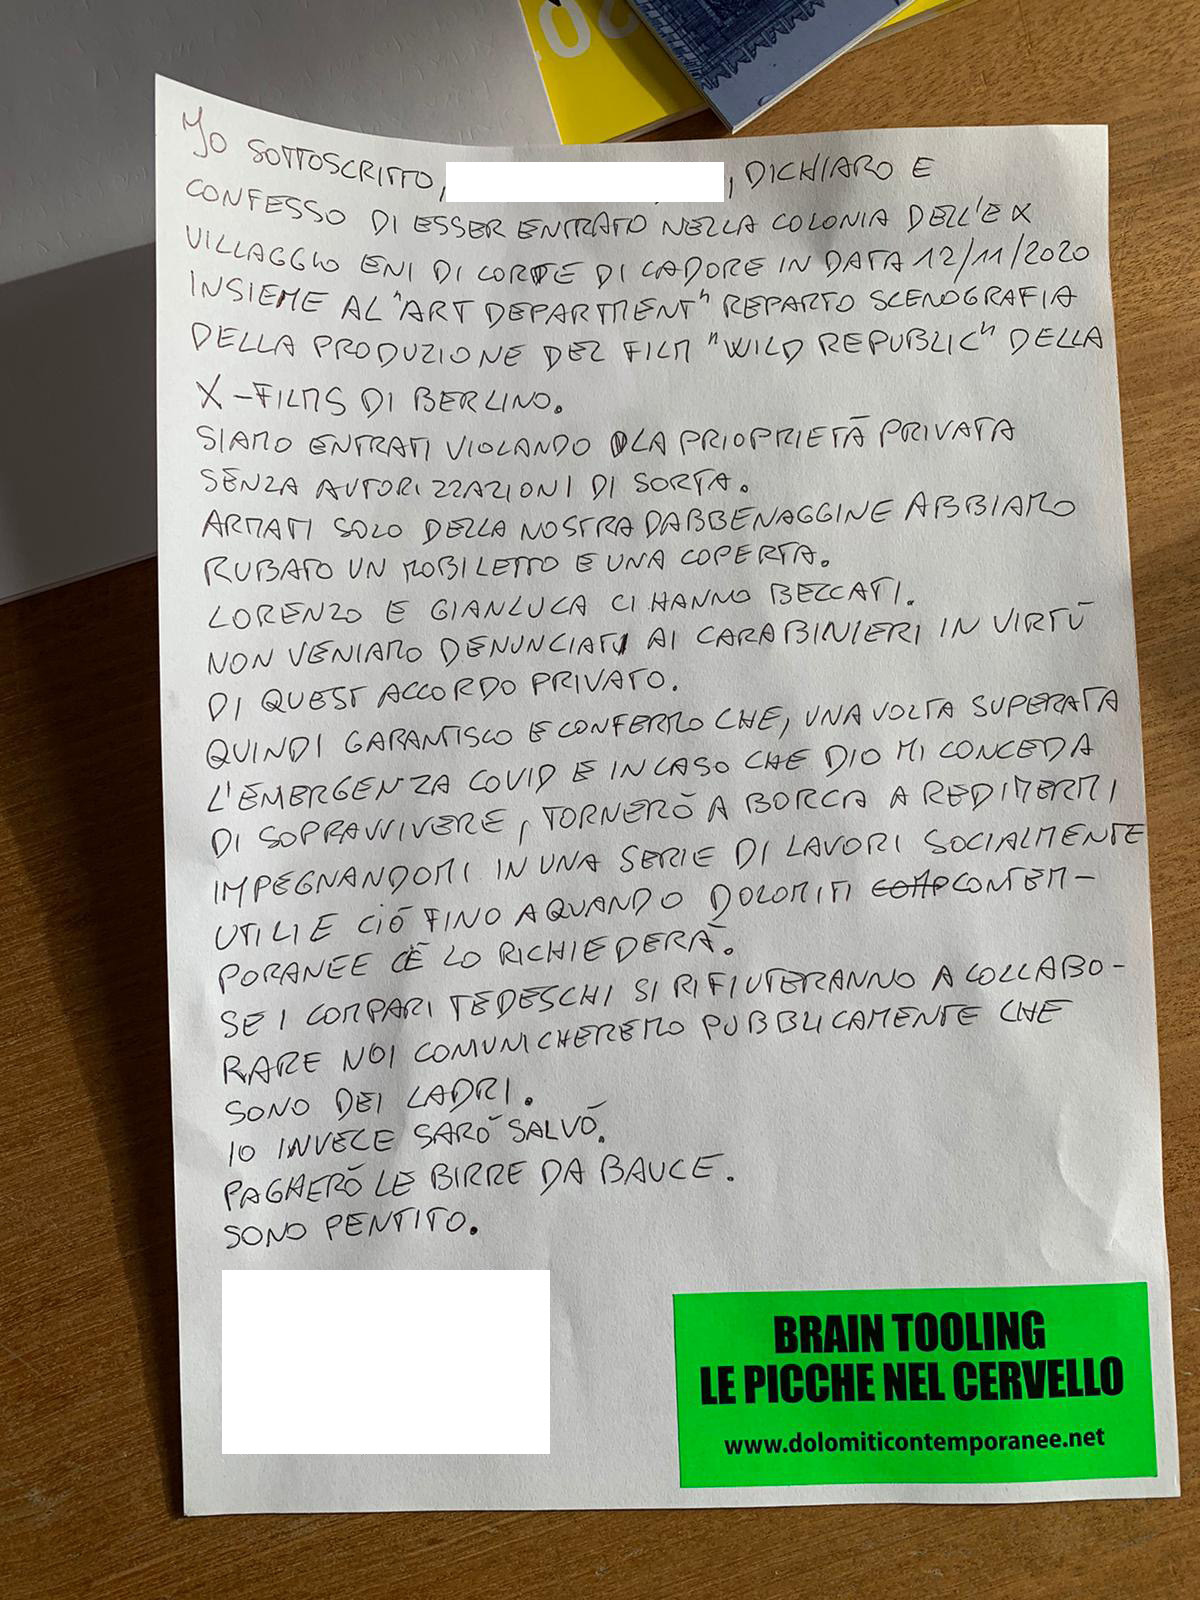 IO SOTTOSCRITTO, , DICHIARO E
CONFESSO DI ESSER ENTRATO NELLA COLONIA DELL'EX
VILLAGGIO ENI DI CORTE DI CADORE IN DATA 12/11/2020
INSIEME AL "ART DEPARTMENT" REPARTO SCENOGRAFIA
DELLA PRODUZIONE DEL FILM "WILD REPUBLIC" DELLA
X-FILMS DI BERLINO.
SIAMO ENTRATI VIOLANDO LA PRIOPRIETÀ PRIVATA
SENZA AUTORIZZAZIONI DI SORTA.
ARMATI SOLO DELLA NOSTRA DABBENAGGINE ABBIAMO
RUBATO UN MOBILETTO E UNA COPERTA.
LORENZO E GIANLUCA CI HANNO BECCATI.
NON VENIAMO DENUNCIATI AI CARABINIERI IN VIRTÙ
DI QUEST ACCORDO PRIVATO.
QUINDI GARANTISCO E CONFERMO CHE, UNA VOLTA SUPERATA
L'EMERGENZA COVID E IN CASO CHE DIO MI CONCEDA
DI SOPRAVVIVERE, TORNERÒ A BORCA A REDIMERMI
IMPEGNANDOMI IN UNA SERIE DI LAVORI SOCIALMENTE
UTILI E CIÒ FINO A QUANDO DOLOMITI COMP CONTEM-
PORANEE CE LO RICHIEDERÀ.
SE I COMPARI TEDESCHI SI RIFIUTERANNO A COLLABO-
RARE NOI COMUNICHEREMO PUBBLICAMENTE CHE
SONO DEI LADRI.
IO INVECE SARÒ SALVO.
PAGHERÒ LE BIRRE DA BAUCE.
SONO PENTITO.
BRAIN TOOLING
LE PICCHE NEL CERVELLO
www.dolomiticontemporanee.net